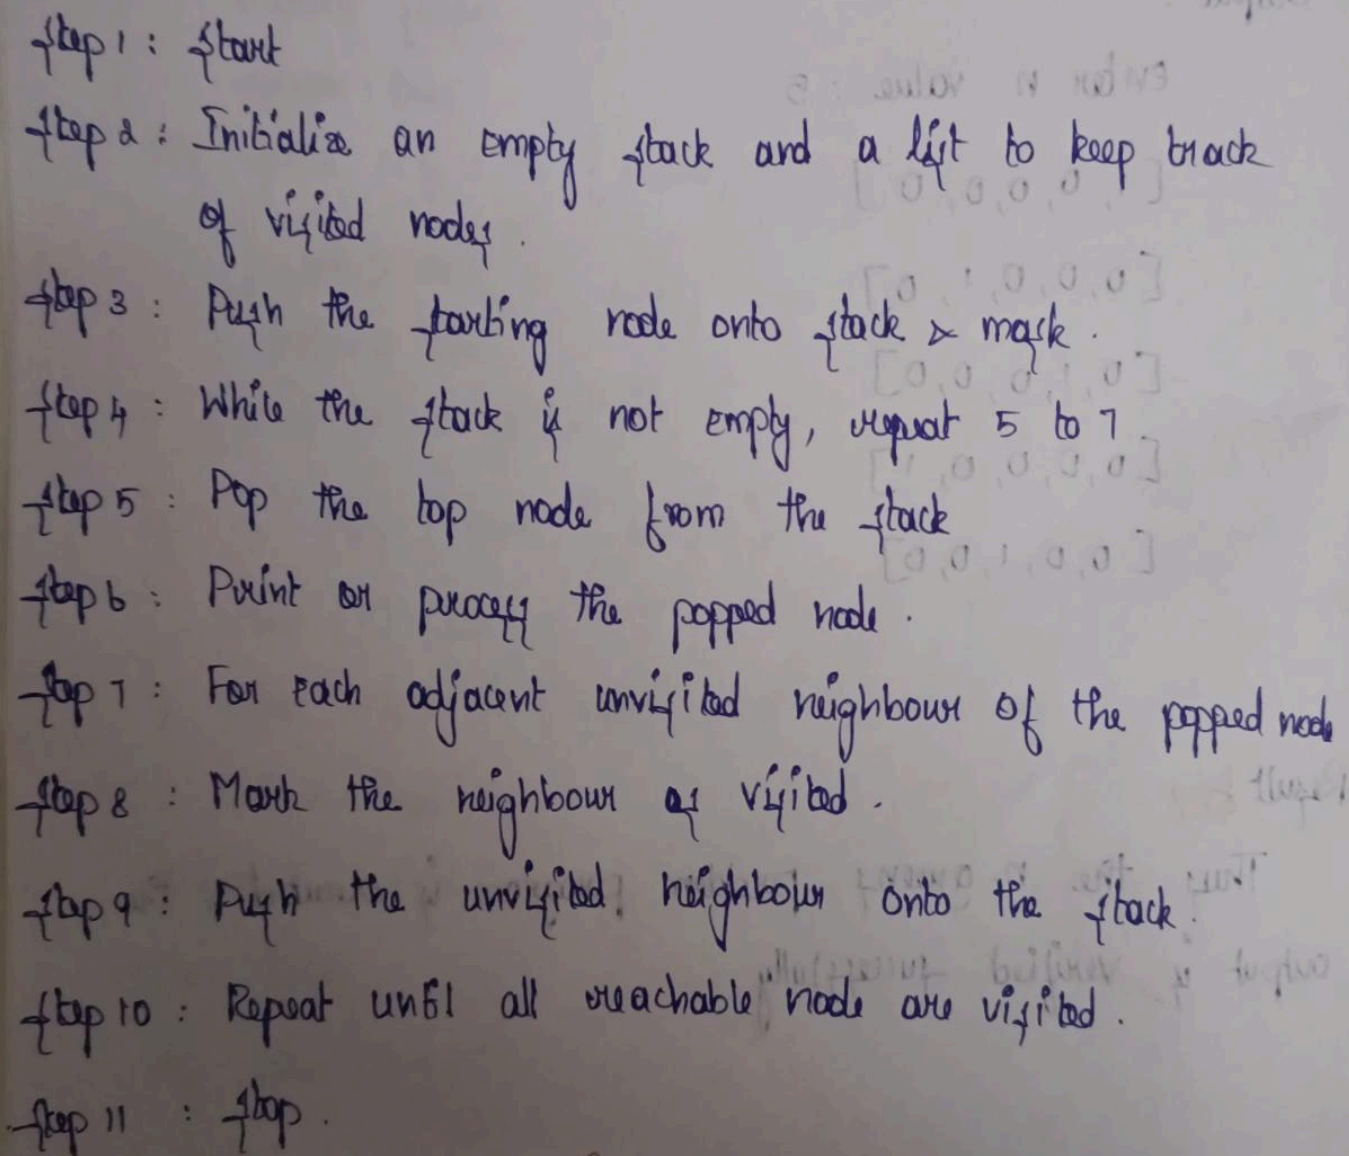 Step 1 : Start
Step 2 : Initialize an empty stack and a list to keep track
of visited nodes.
Step 3 : Push the starting node onto stack & mask.
Step 4 : While the stack is not empty, repeat 5 to 7
Step 5 : Pop the top node from the stack
Step 6 : Print or process the popped node.
Step 7 : For each adjacent unvisited neighbour of the popped node
Step 8 : Mark the neighbour as visited.
Step 9 : Push the unvisited neighbour onto the stack.
Step 10 : Repeat until all reachable node are visited.
Step 11 : Stop.